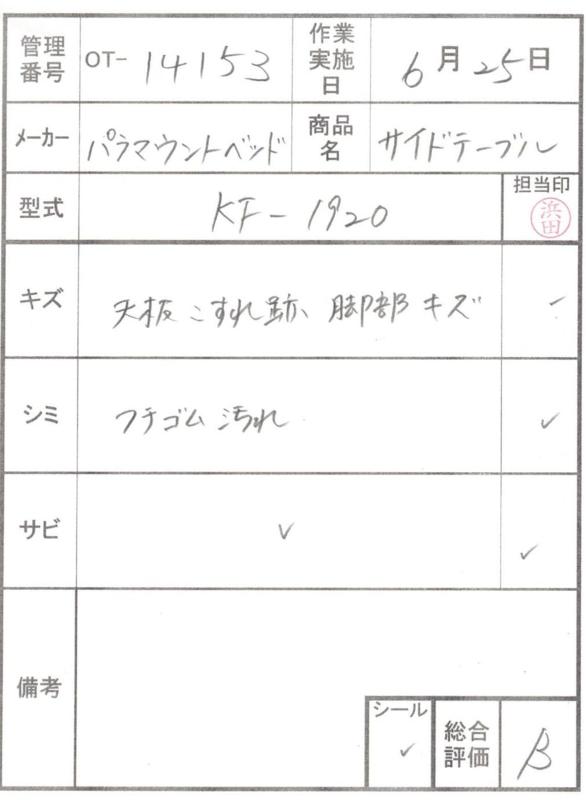 管理番号 OT-14153 作業実施日 6月25日
メーカー パラマウントベッド 商品名 サイドテーブル
型式 KF-1920 担当印 浜田
キズ 天板こすれ跡、脚部キズ
シミ フチゴム汚れ ✓
サビ ✓ ✓
備考
シール ✓ 総合評価 B